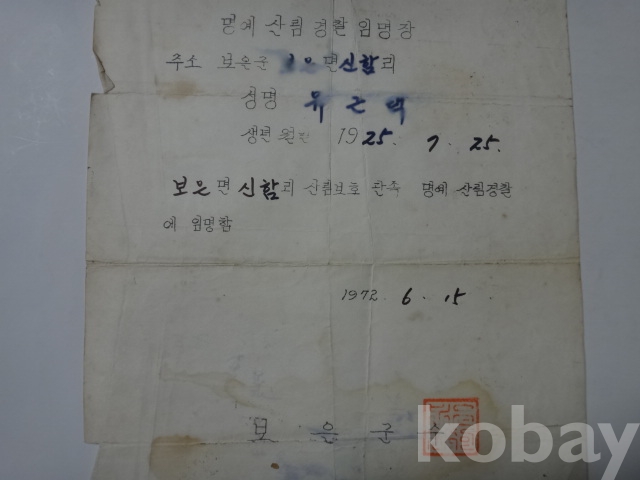 명예 산림 경찰 임명장
주소 보은군 보은면 신함리
성명 유근억
생년 월일 1925. 7. 25.
보은면 신함리 산림보호 관속 명예 산림경찰
에 임명함
1972. 6. 15
보 은 군
kobay